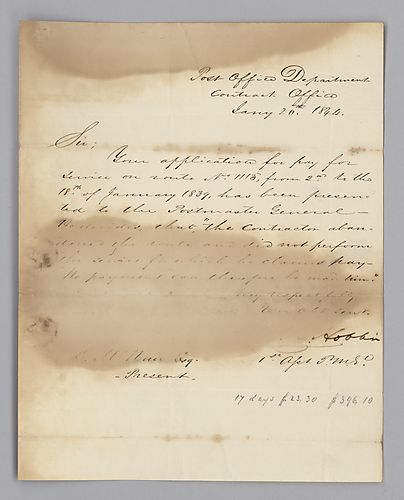 Post Office Department
Contract Office
Jany 20th 1844.
Sir;
Your application for pay for
service on route No. 1113, from 2nd to the
18th of January 1839, has been presen-
ted to the Postmaster General —
He decides, that, "the Contractor aban-
doned the route and did not perform
the service for which he claims pay—
No payment can therefore be made him."
Very respectfully
Your Obt Servt.
Hobbie
1st Asst P.M.Gl
Esq.
Present
17 days $23.30 $396.10